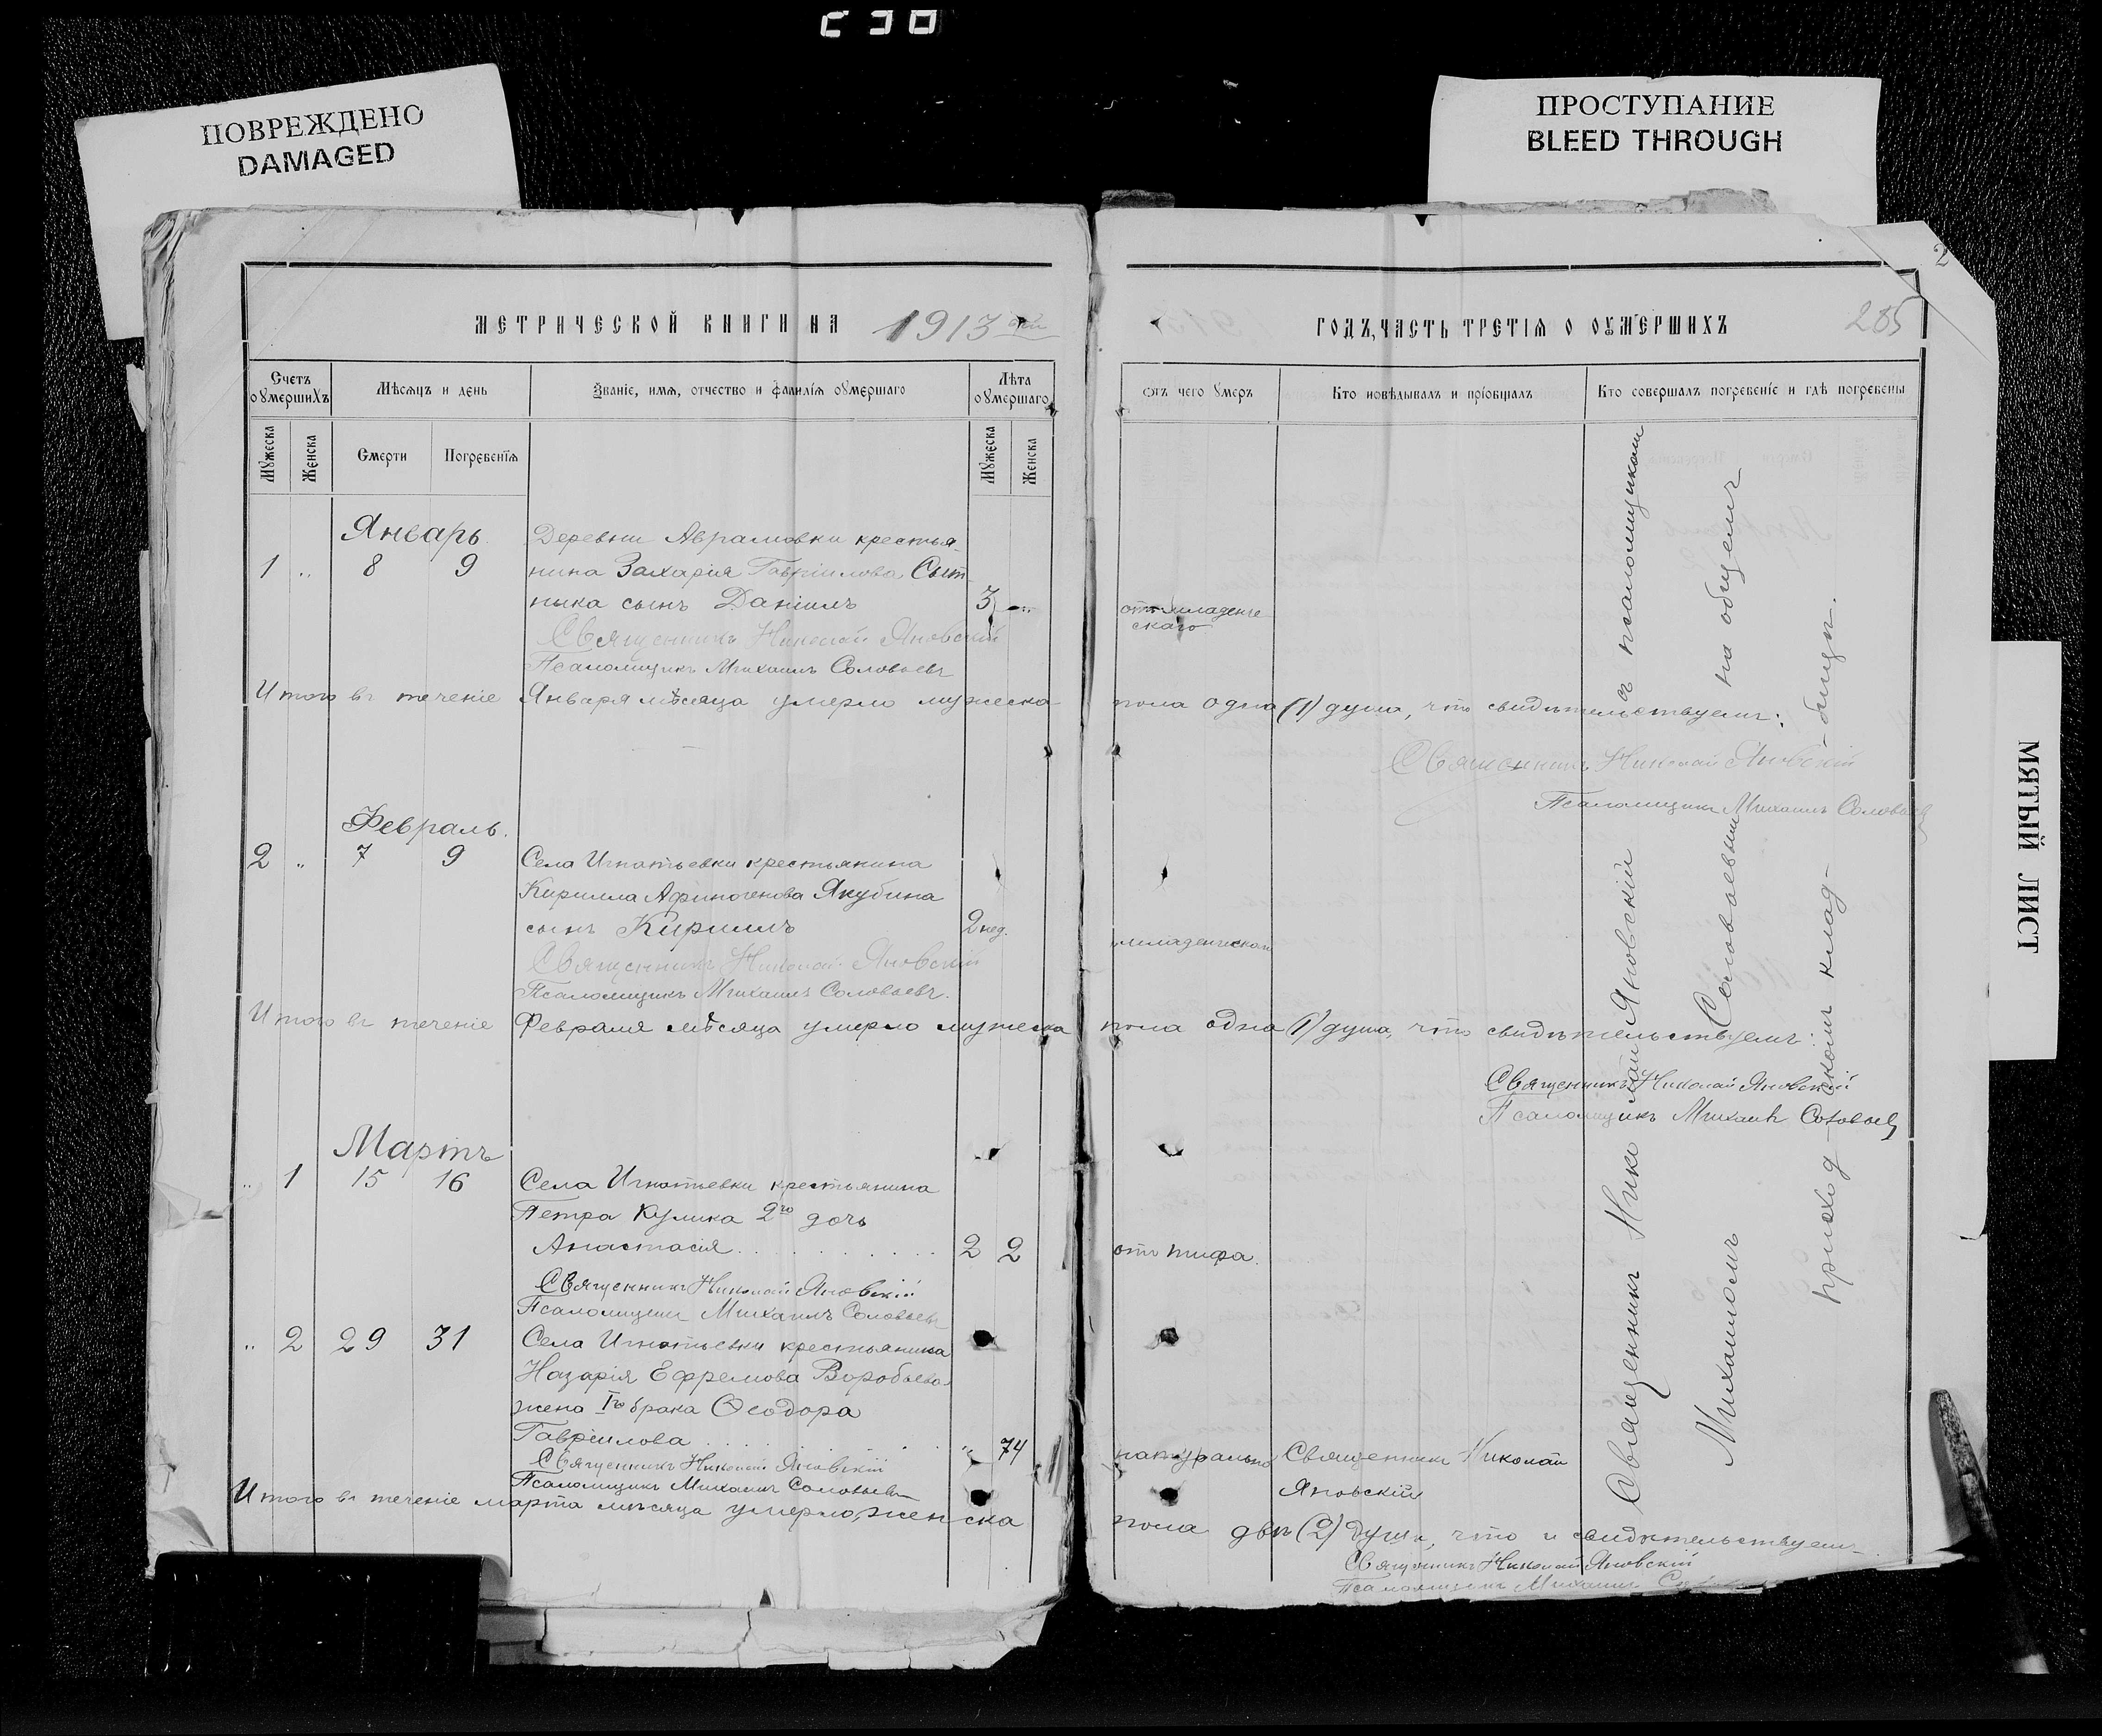 ПОВРЕЖДЕНО
DAMAGED
ПРОСТУПАНИЕ
BLEED THROUGH
МЯТЫЙ ЛИСТ
МЕТРИЧЕСКОЙ КНИГИ НА 1913
Счетъ оумершихъ
Мѣсяцъ и день
Званіе, имя, отчество и фамилія оумершаго
Лѣта оумершаго
Мужеска
Женска
Смерти
Погребенія
Мужеска
Женска
Январь
Деревни Аврамовки крестья-
1 „ 8 9 нина Захарія Гавріилова Сыт-
ника сынъ Даніилъ 3 „
Священникъ Николай Яновскій
Псаломщикъ Михаилъ Соловьевъ
Итого въ теченіе Января мѣсяца умерло мужеска
Февраль.
2 „ 7 9 Села Игнатьевки крестьянина
Кирилла Афиногенова Якубина
сынъ Кириллъ 2 нед.
Священникъ Николай Яновскій
Псаломщикъ Михаилъ Соловьевъ.
Итого въ теченіе Февраля мѣсяца умерло мужеска
Мартъ
„ 1 15 16 Села Игнатьевки крестьянина
Петра Кулика 2го дочь
Анастасія 2 2
Священникъ Николай Яновскій
Псаломщикъ Михаилъ Соловьевъ
„ 2 29 31 Села Игнатьевки крестьянина
Назарія Ефремова Воробьева
жена Iго брака Ѳеодора
Гавріилова „ 74
Священникъ Николай Яновскій
Псаломщикъ Михаилъ Соловьевъ
Итого въ теченіе марта мѣсяца умерло, женска
ГОДЪ, ЧАСТЬ ТРЕТІЯ О ОУМЕРШИХЪ
285
2
Отъ чего умеръ
Кто исповѣдывалъ и пріобщалъ
Кто совершалъ погребеніе и гдѣ погребены
отъ младенче
скаго
пола одна (1) душа, что свидѣтельствуемъ:
Священникъ Николай Яновскій
Псаломщикъ Михаилъ Соловьевъ
младенческой
пола одна (1) душа, что свидѣтельствуемъ:
Священникъ Николай Яновскій
Псаломщикъ Михаилъ Соловьевъ
отъ тифа.
натурально Священникъ Николай
Яновскій
пола двѣ (2) души, что и свидѣтельствуемъ
Священникъ Николай Яновскій
Псаломщикъ Михаилъ
Священникъ Николай Яновскій съ псаломщикомъ
Михаиломъ Соловьевымъ на общемъ
приход-скомъ клад-бищѣ.